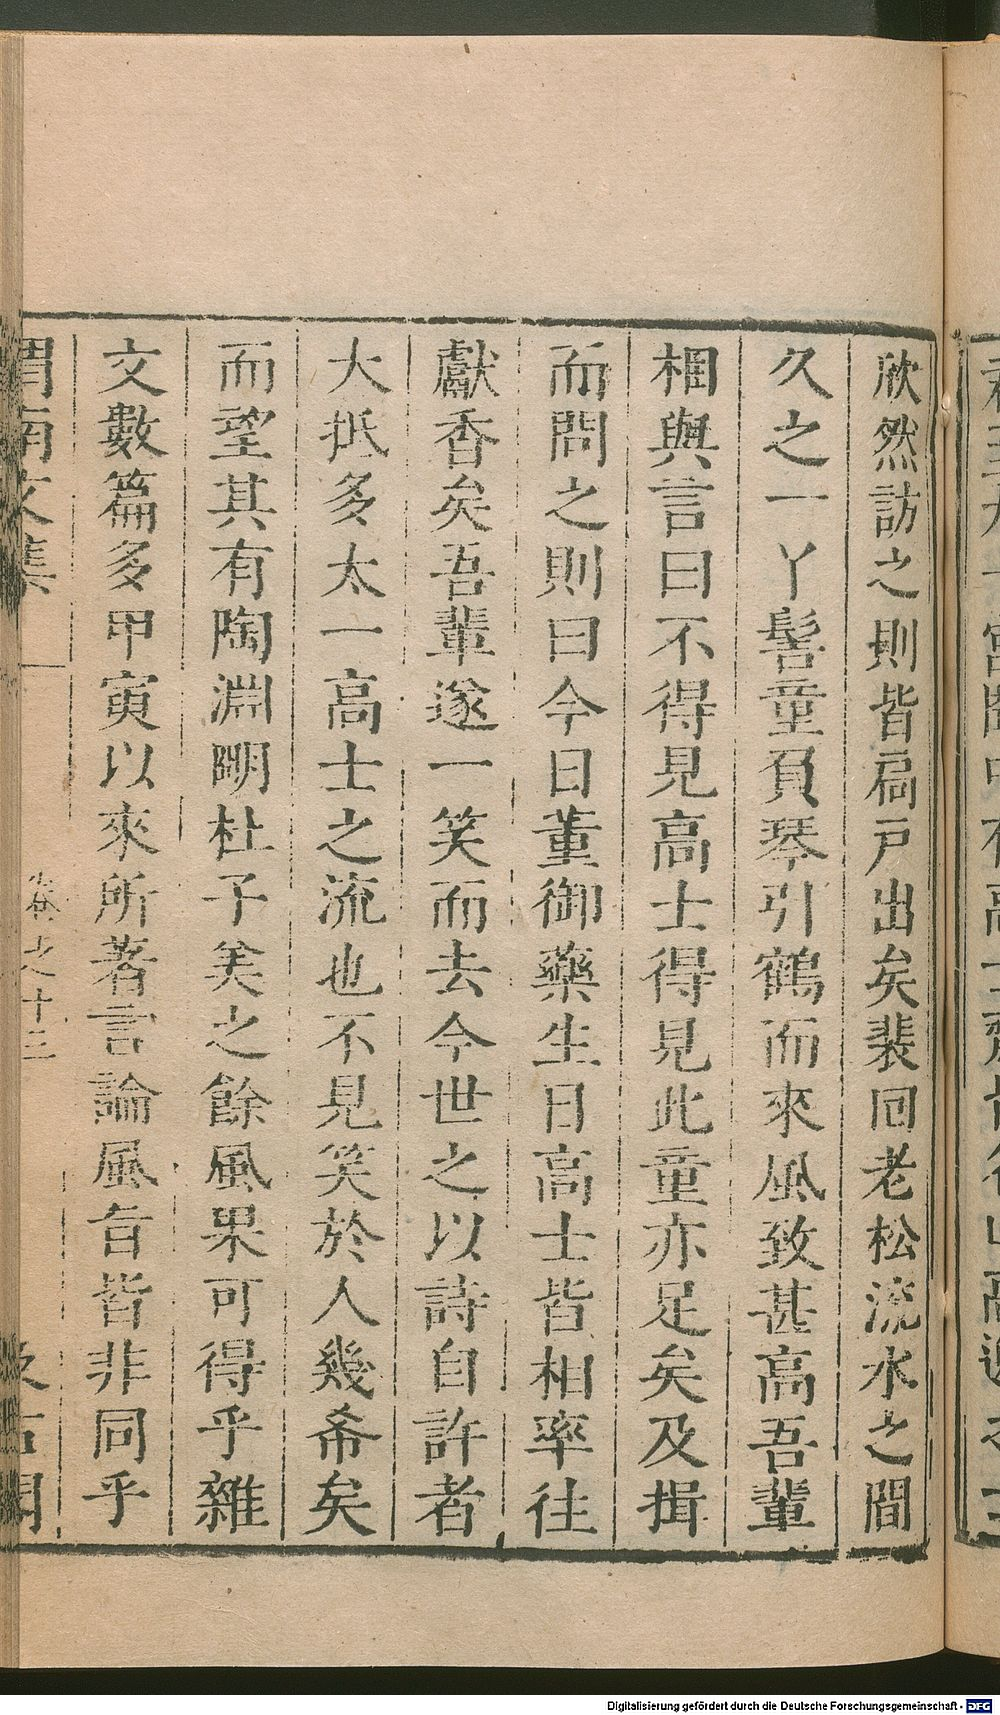 欣然訪之則皆扃戶出矣裴回老松流水之間
久之一丫髻童負琴引鶴而來風致甚高吾輩
相與言曰不得見高士得見此童亦足矣及揖
而問之則曰今日董御藥生日高士皆相率往
獻香矣吾輩遂一笑而去今世之以詩自許者
大抵多太一高士之流也不見笑於人幾希矣
而望其有陶淵明杜子美之餘風果可得乎雜
文數篇多甲寅以來所著言論風旨皆非同乎
渭南文集 卷之十三 汲古閣
Digitalisierung gefördert durch die Deutsche Forschungsgemeinschaft - DFG